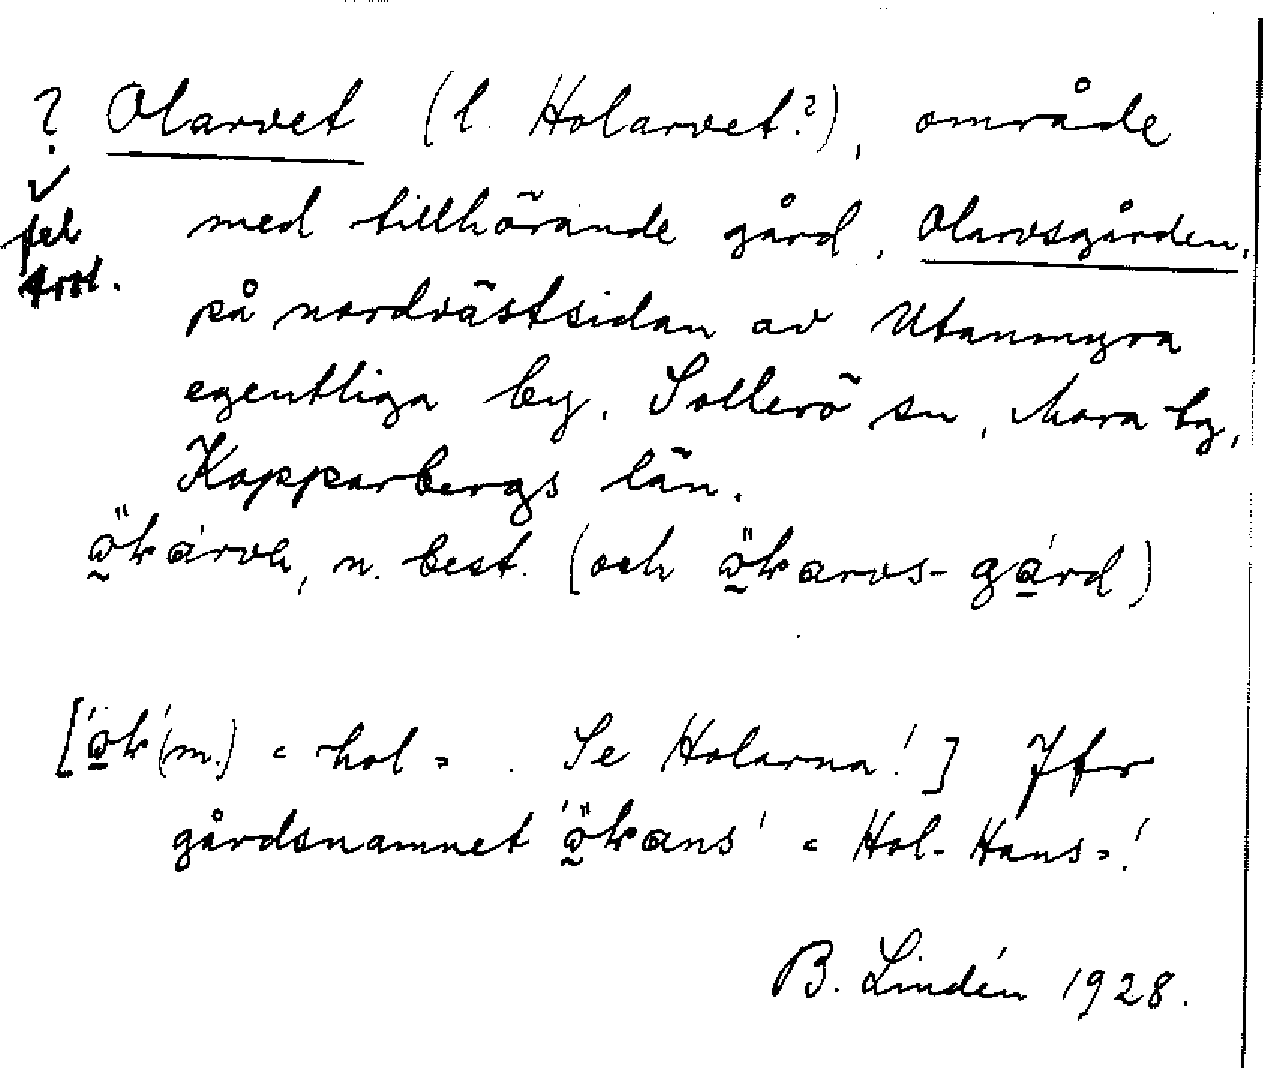 ? Olarvet (l. Holarvet?), område
✓ med tillhörande gård, Olarvsgården,
fel
på nordvästsidan av Utanmyra
egentliga by, Sollerö sn, Mora tg,
Kopparbergs län.
n. best. (och
(m.) = hol = . Se Holarna!] Jfr
gårdsnamnet = Hol-Hans=!
B. Lindén 1928.